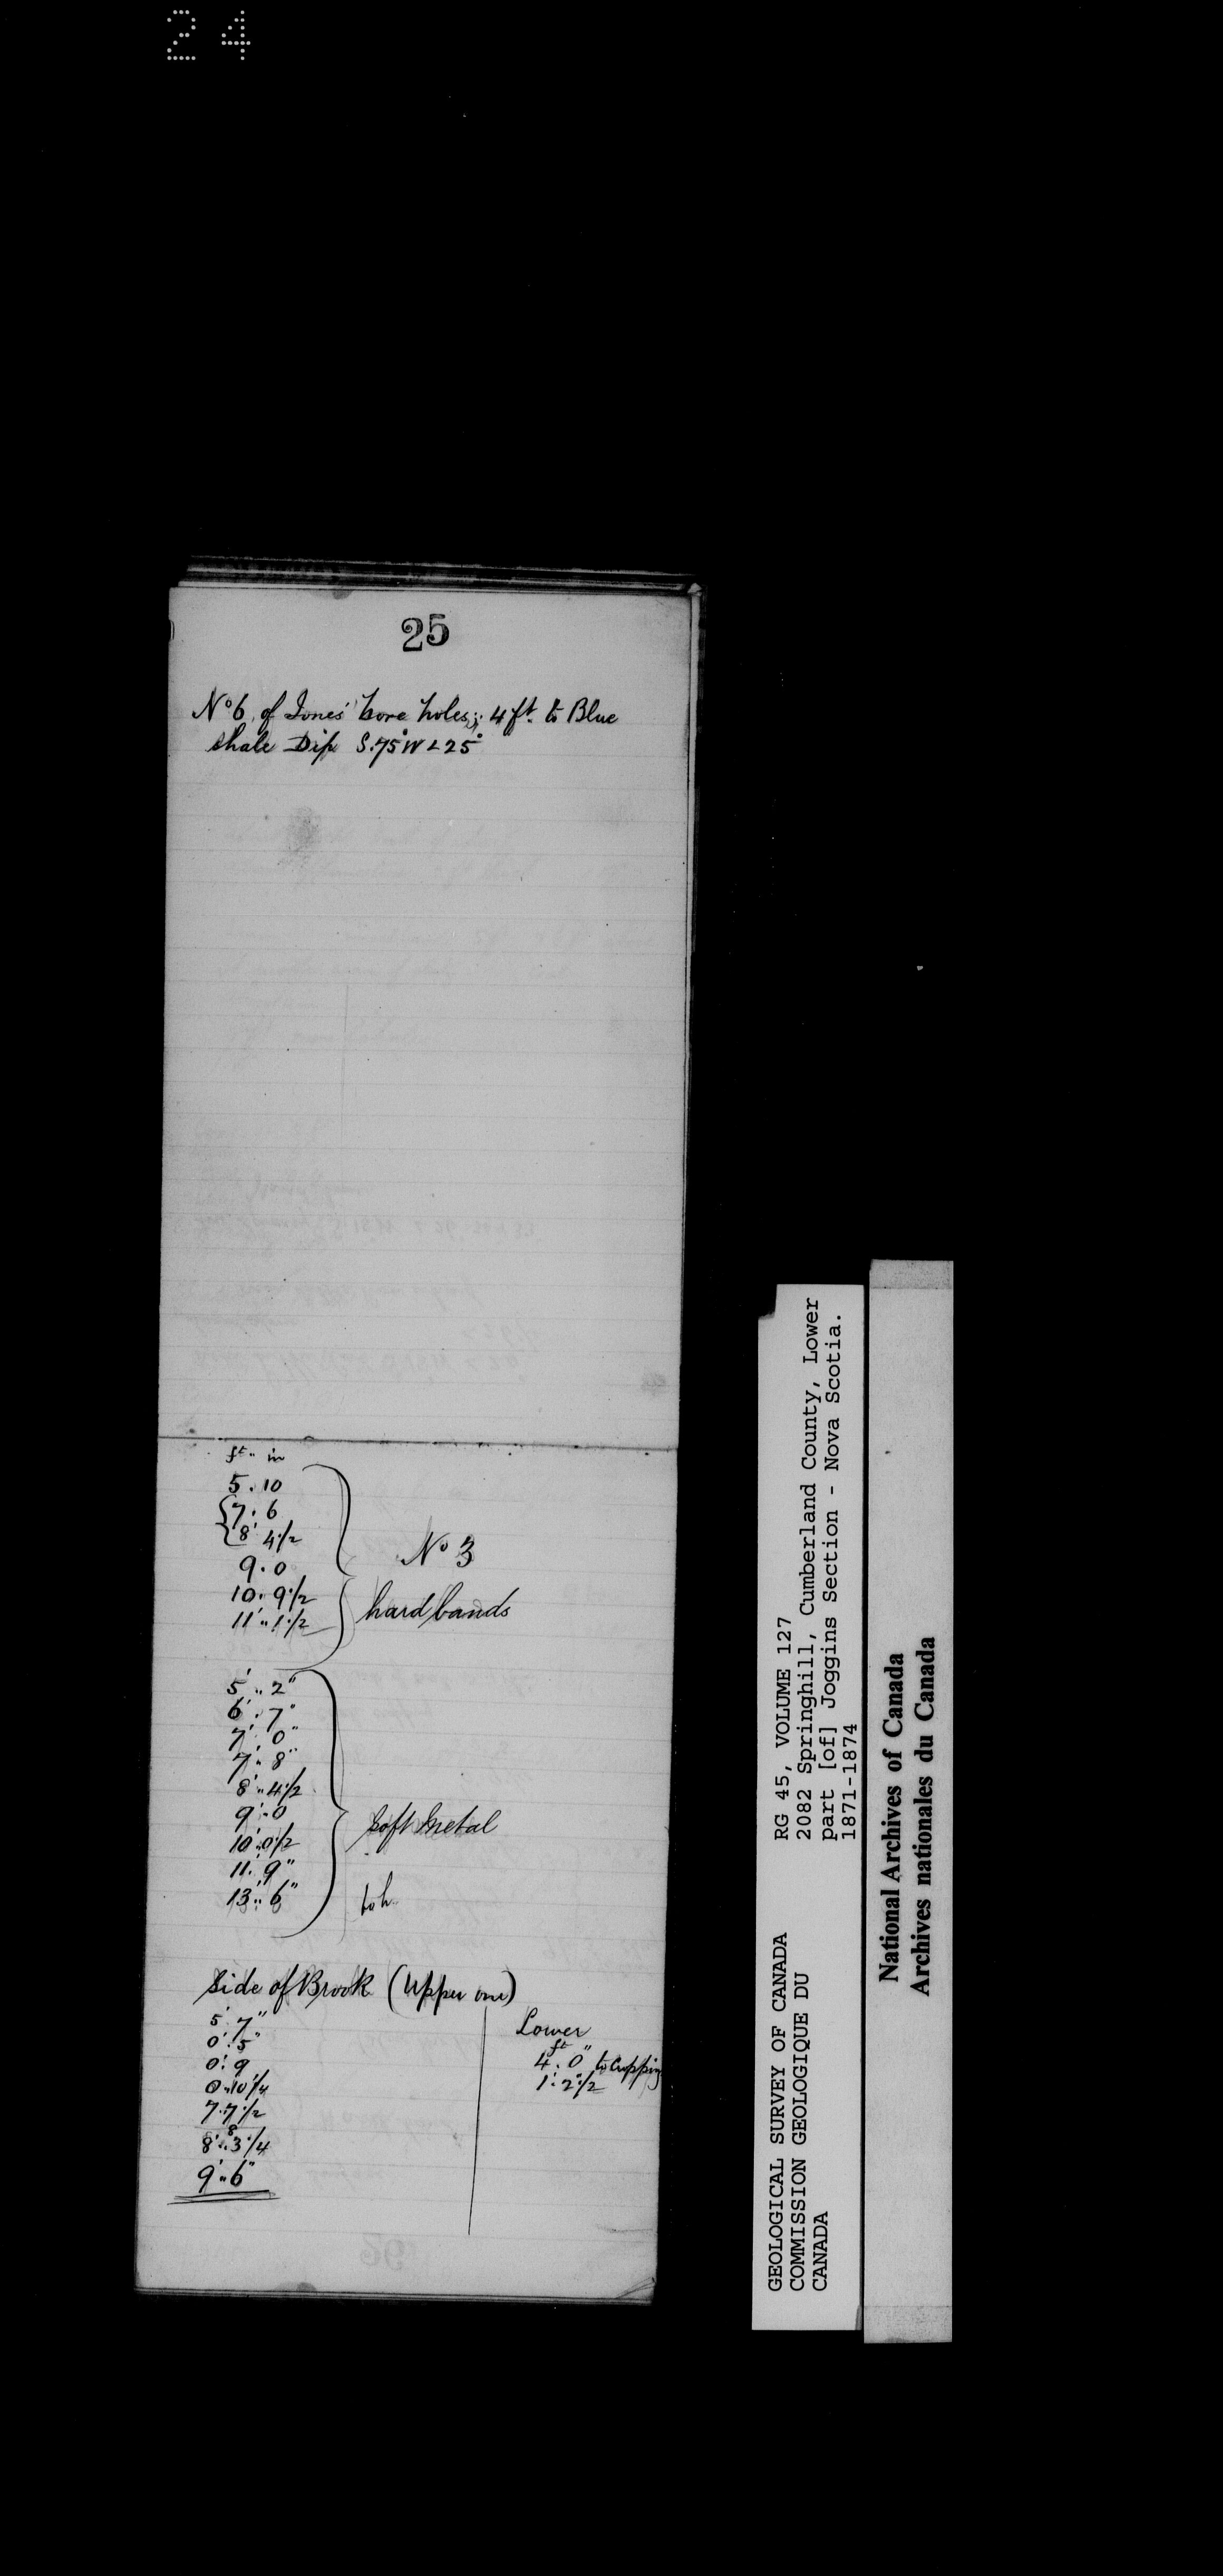 24
25
No 6 of Jones' bore holes; 4 ft. to Blue
shale Dip S.75°W ∠ 25°
ft. in
5. 10
7. 6
8' 4 1/2
9. 0
10. 9 1/2
11' .. 1 1/2
No 3
hard bands
5' .. 2"
6' . 7"
7' . 0"
7' .. 8"
8' .. 4 1/2
9' .. 0
10' .. 0 1/2
11' . 9"
13' .. 6"
soft metal
Side of Brook (Upper one)
5' . 7"
0' . 5"
0' . 9
0 .. 10 1/4
7 . 7 1/2
8' .. 3 1/4
9' .. 6"
Lower
ft
4 . 0" to Cropping
1' . 2 1/2
GEOLOGICAL SURVEY OF CANADA
COMMISSION GEOLOGIQUE DU
CANADA
RG 45, VOLUME 127
2082 Springhill, Cumberland County, Lower
part [of] Joggins Section - Nova Scotia.
1871-1874
National Archives of Canada
Archives nationales du Canada